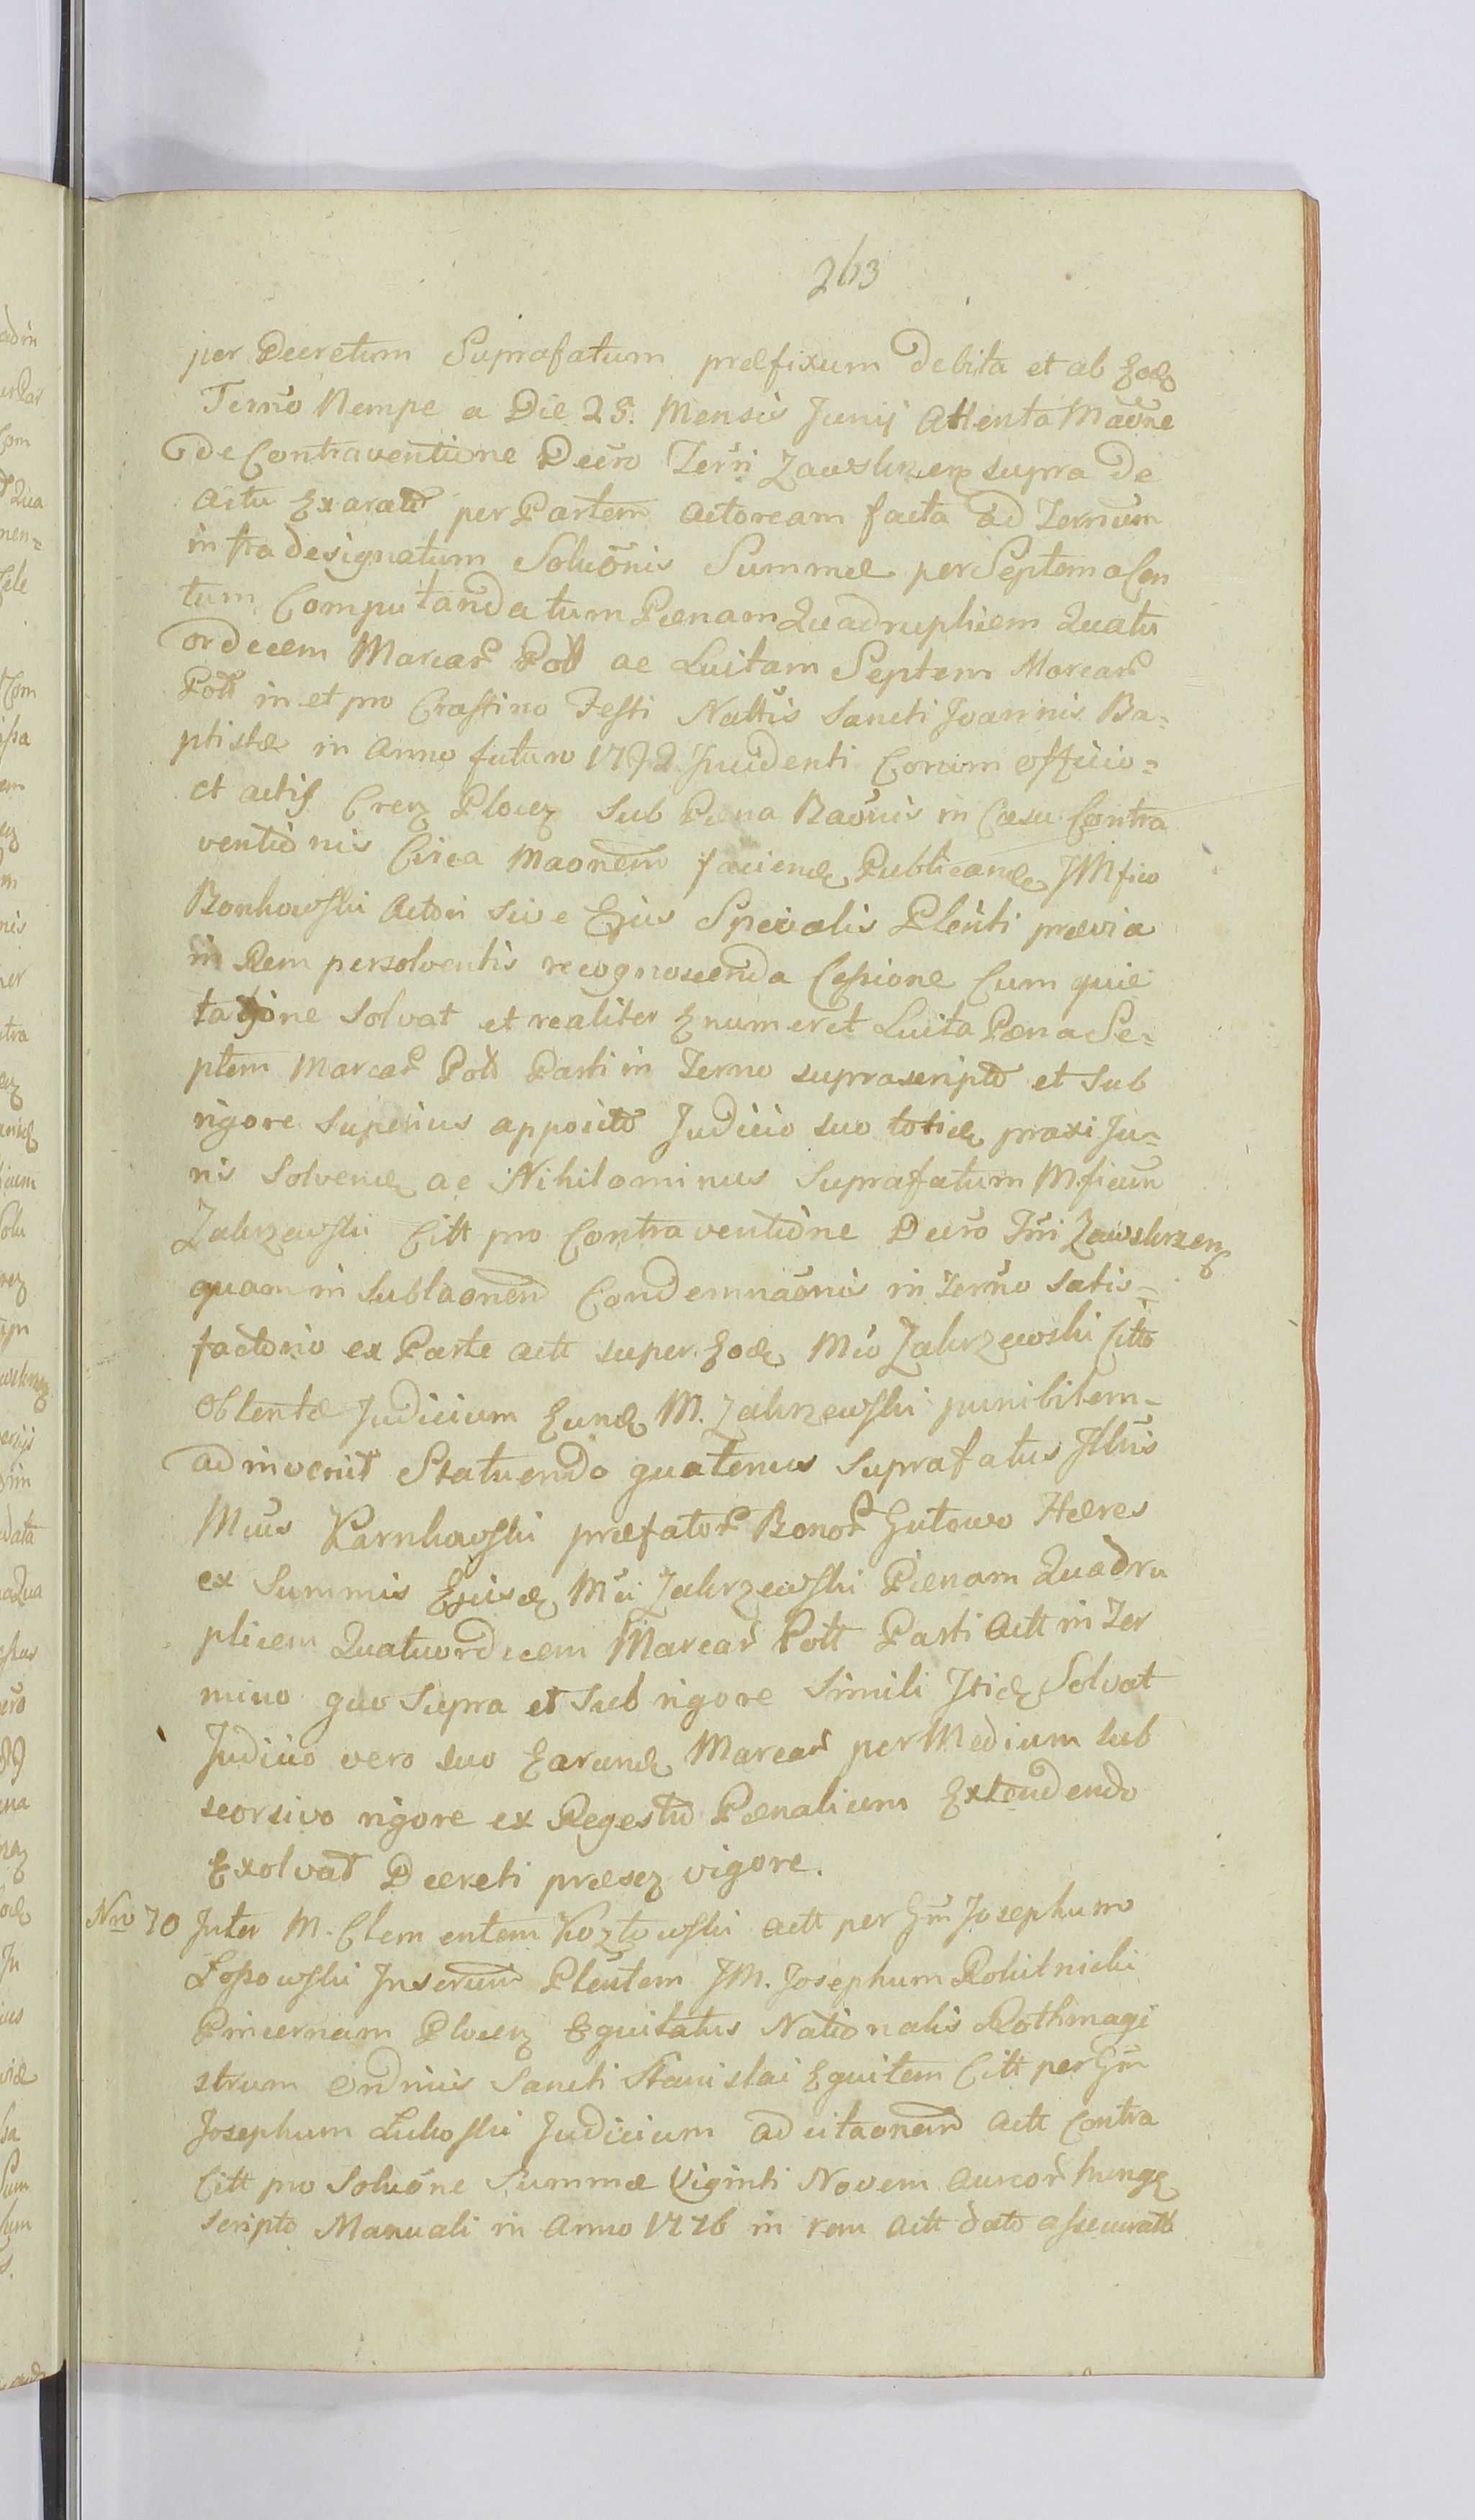 263
per Decretum Suprafatum præfixum debita et ab Eodē
Termō Nempe a Die 25. Mensis Junij Attenta Maōne
de Contraventione Decrō Terrī Zawskrzen supra de
Actu Exarato per Partem Actoream facta ad Termum
infra designatum Soluōnis Summæ per Septem a Cen
tum Computanda tum Pænam Quadruplicem Quatu
ordecem Marcar Poll ac Luitam Septem Marcar
Poll in et pro Crastino Festi Nattis Sancti Joannis Ba=
ptistæ in Anno futuro 1792 Incidenti Coram officio=
et actis Cren Plocen Sub Pæna Baōnis in Casu Contra
ventionis Circa Maonem faciendę Publicandę JMfico
Bonkowski Actori sive Ejus Specialis Plenti prævia
in Rem persolventis recognoscenda Cessione Cum quie
tatione Solvat et realiter Enumeret Luita Pæna Se=
ptem Marcar Poll Parti in Termo suprascripto et Sub
rigore Superius apposito Judicio suo totidę praxi Ju=
ris Solvendę ac Nihilominus Suprafatum Mficum
Zakrzewski Citt pro Contraventione Decrō Trri Zawskrzen
quam in Sublaonem Condemnaōnis in Termō Satis=
factorio ex Parte Actt super Eodę Mco Zakrzewski Citto
Obtentæ Judicium Eundę M. Zakrzewski punibilem
adinvenit Statuendo quatenus Suprafatus Jllris
Mcus Karnkowski præfator Bonor Gutowo Hæres
ex Summis Ejusdę Mci Zakrzewski Pænam Quadru
plicem Quatuordecem Marcar Poll Parti Actt in Ter
mino quo Supra et Sub rigore Simili Itidę Solvat
Judicio vero suo Earundę Marcar per Medium sub
seorsivo rigore ex Regestro Pænalium Extendendo
Exolvat Decreti præsen vigore.
Nro 70 Inter M. Clementem Kozłowski Actt per Gm Josephum
Lossowski Juserum Plentem JM. Josephum Rokitnicki
Pincernam Plocen Equitatus Nationalis Rothmagi
strum Ordinis Sancti Stanislai Equitem Citt per Gm
Josephum Lukoski Judicium ad citaonem Actt Contra
Citt pro Soluōne Summæ Viginti Novem Aureor hungę
scripto Manuali in Anno 1776 in rem Actt dato assecuratt